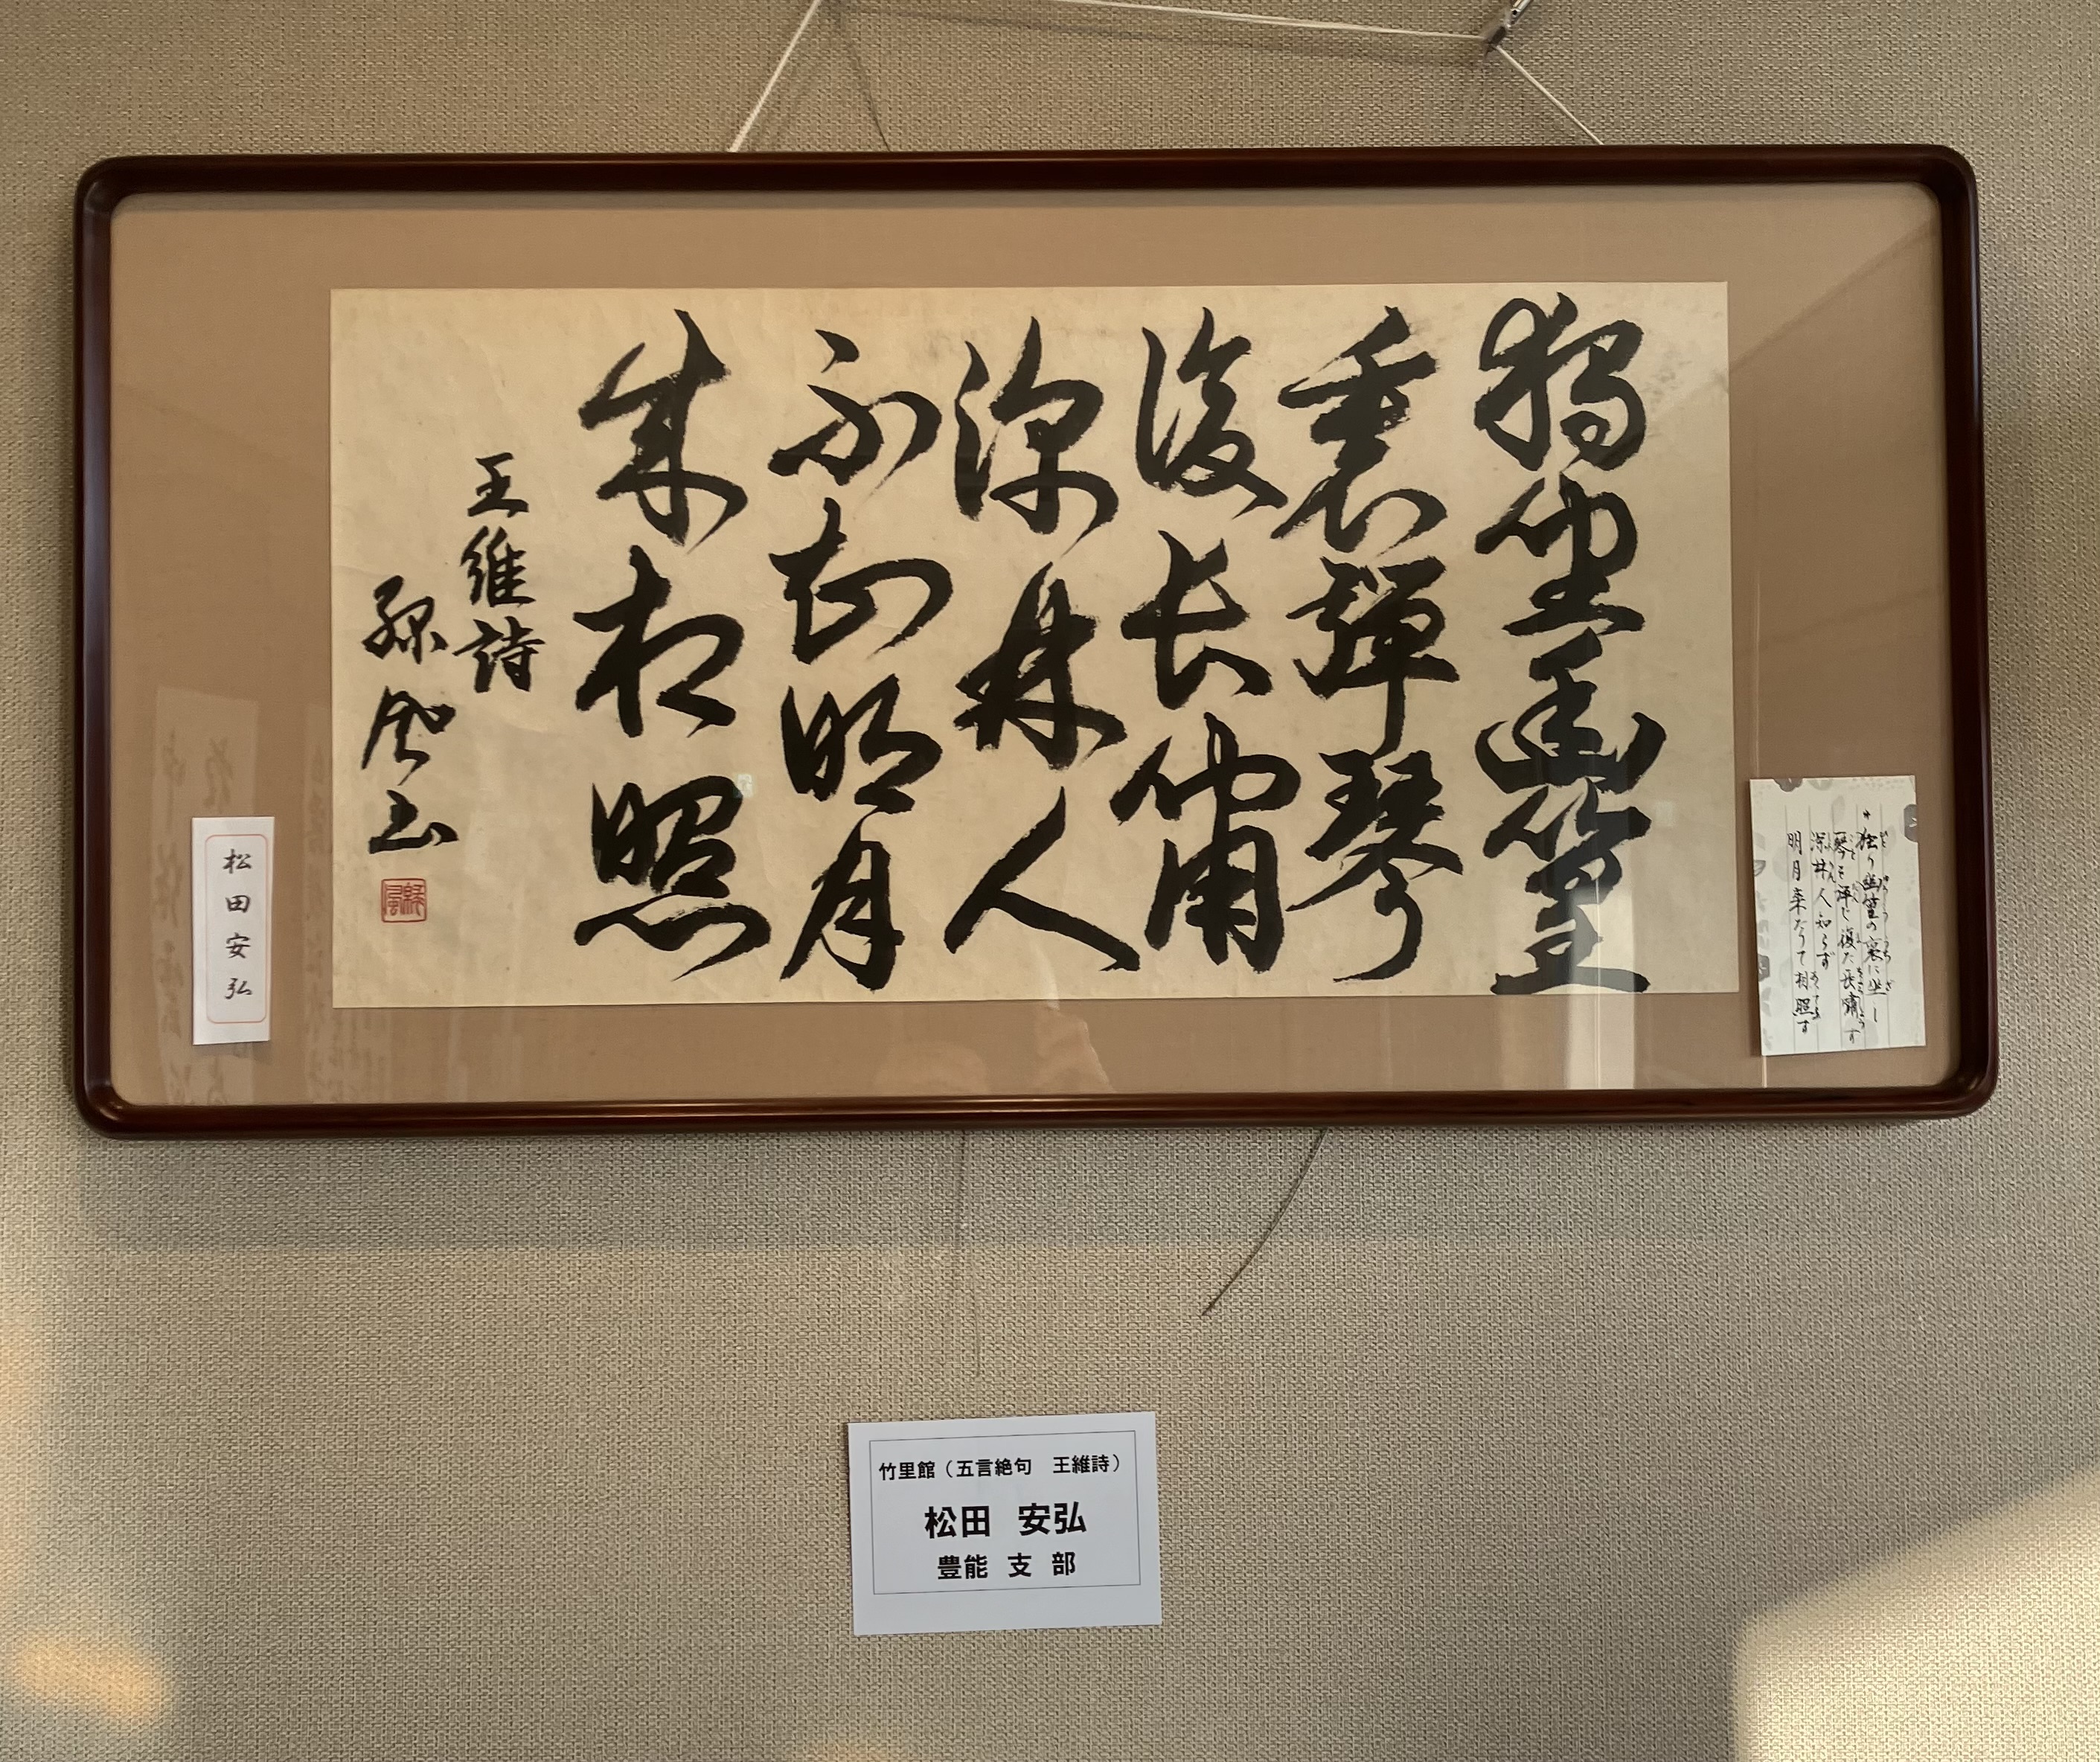 獨坐幽篁
裏彈琴
復長嘯
深林人
不知明月
来相照
王維詩
緑風書
緑風
独り幽篁の裏に坐し
琴を弾じ復た長嘯す
深林人知らず
明月来たりて相照す
松田安弘
竹里館（五言絶句　王維詩）
松田　安弘
豊能　支　部